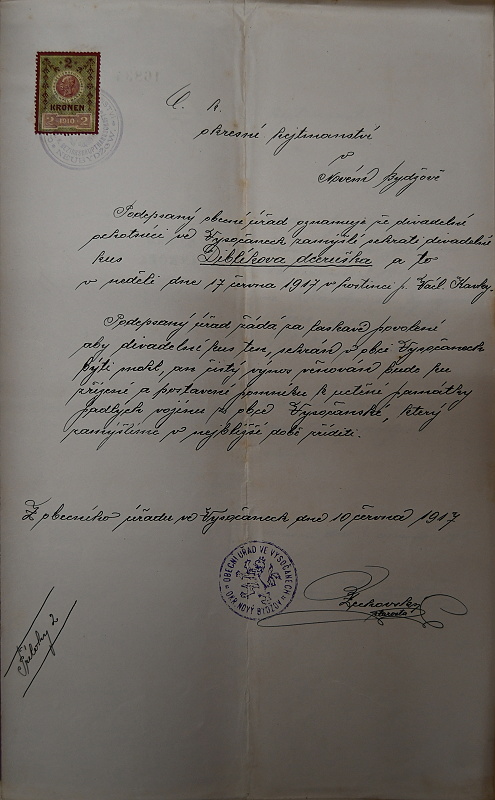 2
KRONEN
2 1910 2
C. k.
okresní hejtmanství
v
Novém Bydžově
Podepsaný obecní úřad oznamuje že divadelní
ochotníci ve Vysočanech zamýšlí sehráti divadelní
kus Diblíkova dceruška a to
v neděli dne 17 června 1917 v hostinci p. Václ.
Podepsaný úřad žádá za laskavé povolení
aby divadelní kus ten, sehrán v obci Vysočanech
býti mohl, an čistý výnos věnován bude ku
příjmě a postavení pomníku k uctění památky
padlých vojínů z obce Vysočanské, který
zamýšlíme v nejbližší době zříditi.
Z obecního úřadu ve Vysočanech dne 10 června 1917
OBECNÍ ÚŘAD VE VYSOČANECH
OKR. NOVÝ BYDŽOV
starosta
Přílohy 2